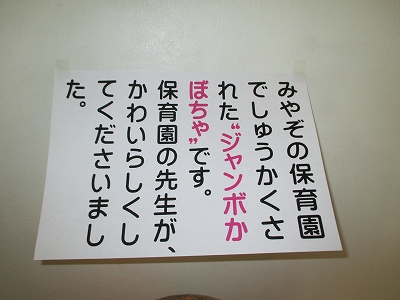 みやぞの保育園
でしゅうかくさ
れた“ジャンボか
ぼちゃ”です。
保育園の先生が、
かわいらしくし
てくださいまし
た。